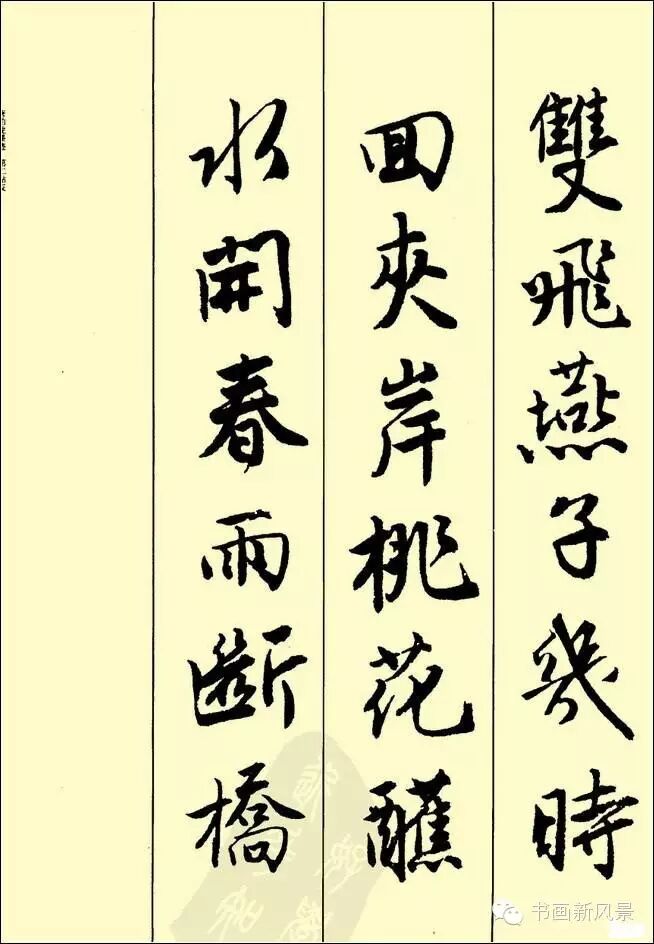 雙飛燕子幾時
回夾岸桃花蘸
水開春雨斷橋
书画新风景